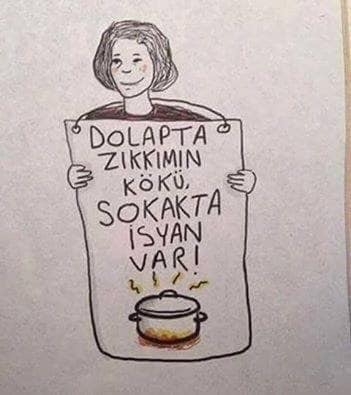 DOLAPTA
ZIKKIMIN
KÖKÜ,
SOKAKTA
İSYAN
VAR!